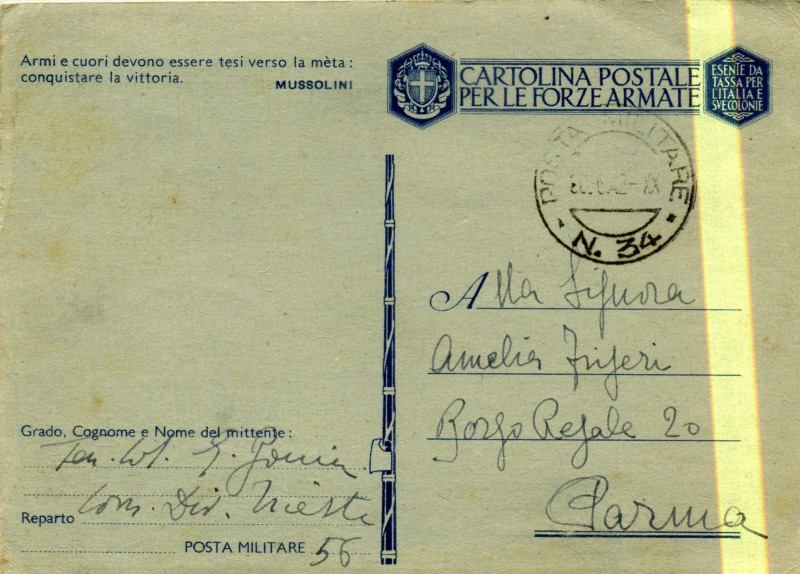 Armi e cuori devono essere tesi verso la mèta :
conquistare la vittoria.
MUSSOLINI
CARTOLINA POSTALE
PER LE FORZE ARMATE
ESENTE DA
TASSA PER
L'ITALIA E
SVE COLONIE
POSTA MILITARE
42-XX
N. 34
Alla Signora
Amelia Frigeri
Borgo Regale 20
Parma
Grado, Cognome e Nome del mittente :
Ten. Col. G.
Reparto Com. Div. Trieste
POSTA MILITARE 56